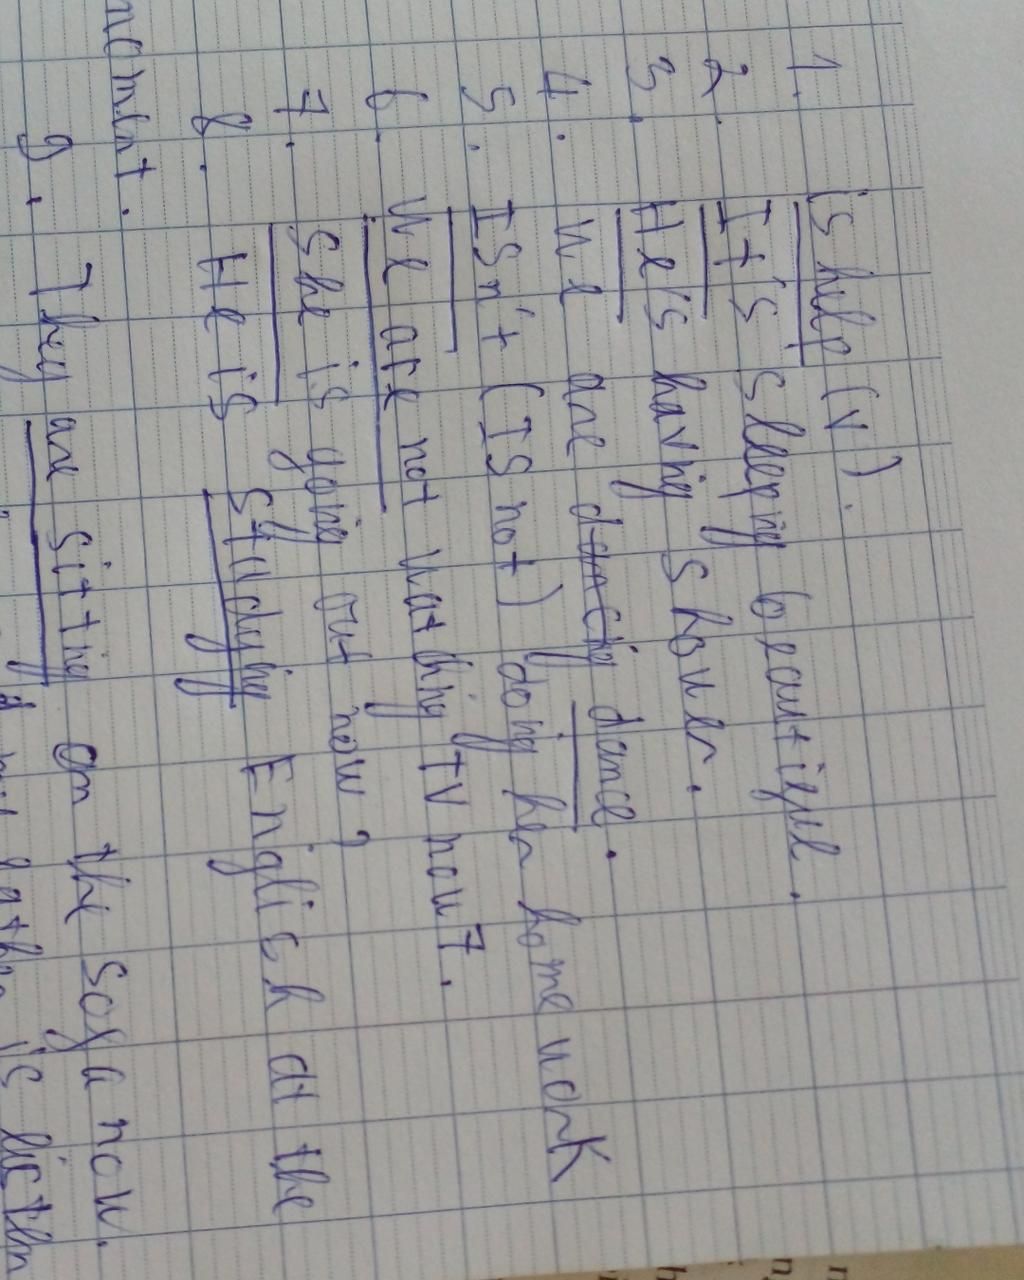 1. is help (v).
2. It's sleeping beautiful.
3. He's having shower.
4. we are dancing dance.
5. ISn't (IS not) doing her home work
6. we are not watching TV now7.
7. She is going out now?
8. He is Studying English at the
moment.
9. They are sitting on the sofa now.
is listen